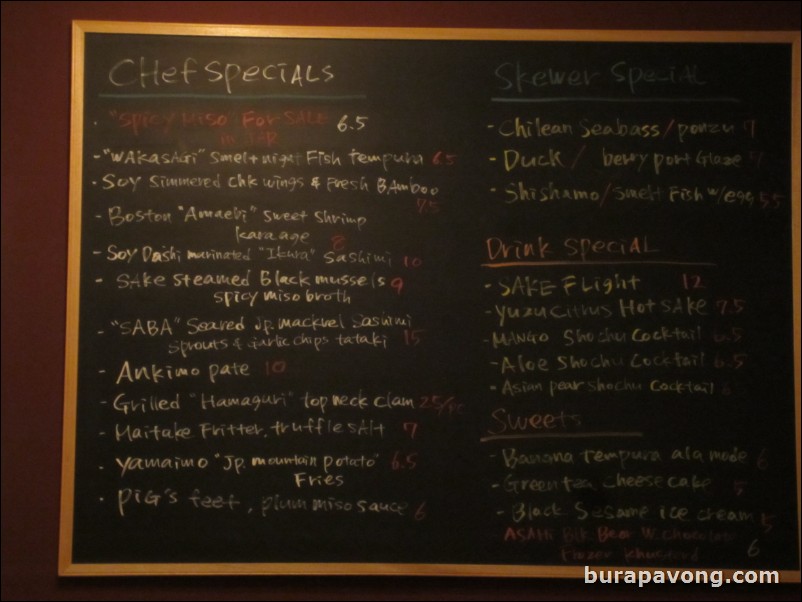 CHef SPeciALS
"Spicy Miso For SALE 6.5
- "WAkasAGi" smelt night Fish tempura 6.5
- Soy Simmered chk wings & Fresh BAmboo
7.5
- Boston "Amaebi" sweet shrimp
karaage 8
- Soy Dashi marinated "Ikura" Sashimi 10
- SAke steamed Black mussels 9
spicy miso broth
- "SABA" Seared Jp. mackrel Sashimi
sprouts & garlic chips tataki 15
- Ankimo pate 10
- Grilled "Hamaguri" top neck clam 2.5/pc
- Maitake Fritter, truffle sAlt 7
- yamaimo "Jp. mountain potato" 6.5
Fries
- PIG's feet, plum miso sauce 6
Skewer Special
- Chilean Seabass / ponzu 7
- Duck / berry port Glaze
- Shishamo / Smelt Fish w/egg 5.5
Drink Special
- SAKE FLight 12
- Yuzu Citrus Hot SAke 7.5
- MANGO Shochu Cocktail 6.5
- Aloe Shochu Cocktail 6.5
- Asian pear Shochu Cocktail 6
Sweets
- Banana tempura ala mode 6
- Green tea cheese cake 5
- Black Sesame ice cream 5
ASAHI Blk Beer W. Chocolate
6
burapavong.com